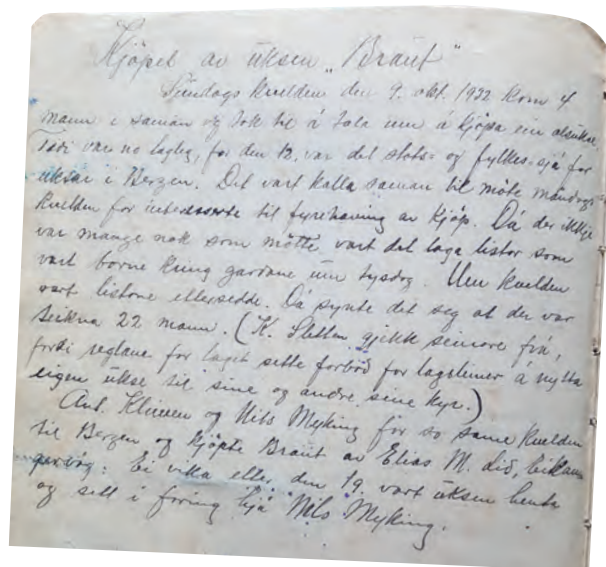 Kjöpet av uksen „Braut"
Sundags kvelden den 9. okt. 1932 kom 4
mann i saman og tok til å tala um å kjöpa ein alsukse.
Tidi var no lagleg, for den 12. var det stats- og fylkes-sjå for
uksar i Bergen. Det vart kalla saman til möte måndags
kvelden for interesserte til fyrehaving av kjöp. Då der ikkje
var mange nok som mötte vart det laga listor som
vart borne kring gardane um tysdag. Um kvelden
vart listone ettersedde. Då synte det seg at der var
teikna 22 mann. (K. Sletten gjekk seinare frå,
fordi reglane for laget sette forbod for lagslemer å nytta
eigen ukse til sine og andre sine kyr.)
Ant. Klimen og Nils Myking for so same kvelden
til Bergen og kjöpte Braut av Elias M. Lid,
Ei vika etter den 19. vart uksen henta
og sett i foring hjå Nils Myking.